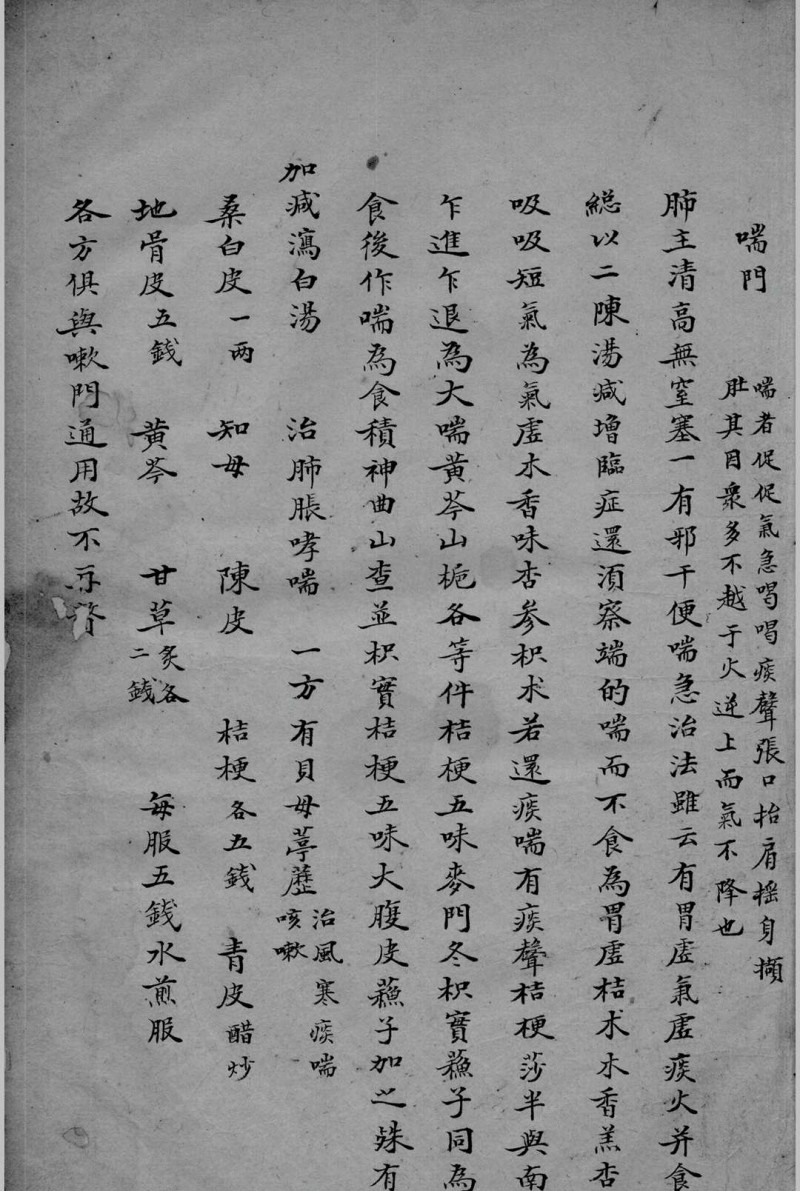 喘門
喘者促促氣急喝喝痰聲張口抬肩搖身擷
肚其因衆多不越于火逆上而氣不降也
肺主清高無窒塞一有邪干便喘急治法雖云有胃虛氣虛痰火并食
総以二陳湯減增臨症還須察端的喘而不食為胃虛桔术木香羔杏
吸吸短氣為氣虛木香味杏参枳术若還痰喘有痰聲桔梗莎半與南
乍進乍退為大喘黄芩山梔各等件桔梗五味麥門冬枳實蘓子同為
食後作喘為食積神曲山查並枳實桔梗五味大腹皮蘓子加之殊有
加減瀉白湯 治肺脹哮喘 一方有貝母葶藶治風寒痰喘咳嗽
桑白皮一两 知母 陳皮 桔梗各五錢 青皮醋炒
地骨皮五錢 黄芩 甘草炙各二錢 每服五錢水煎服
各方俱與嗽門通用故不再